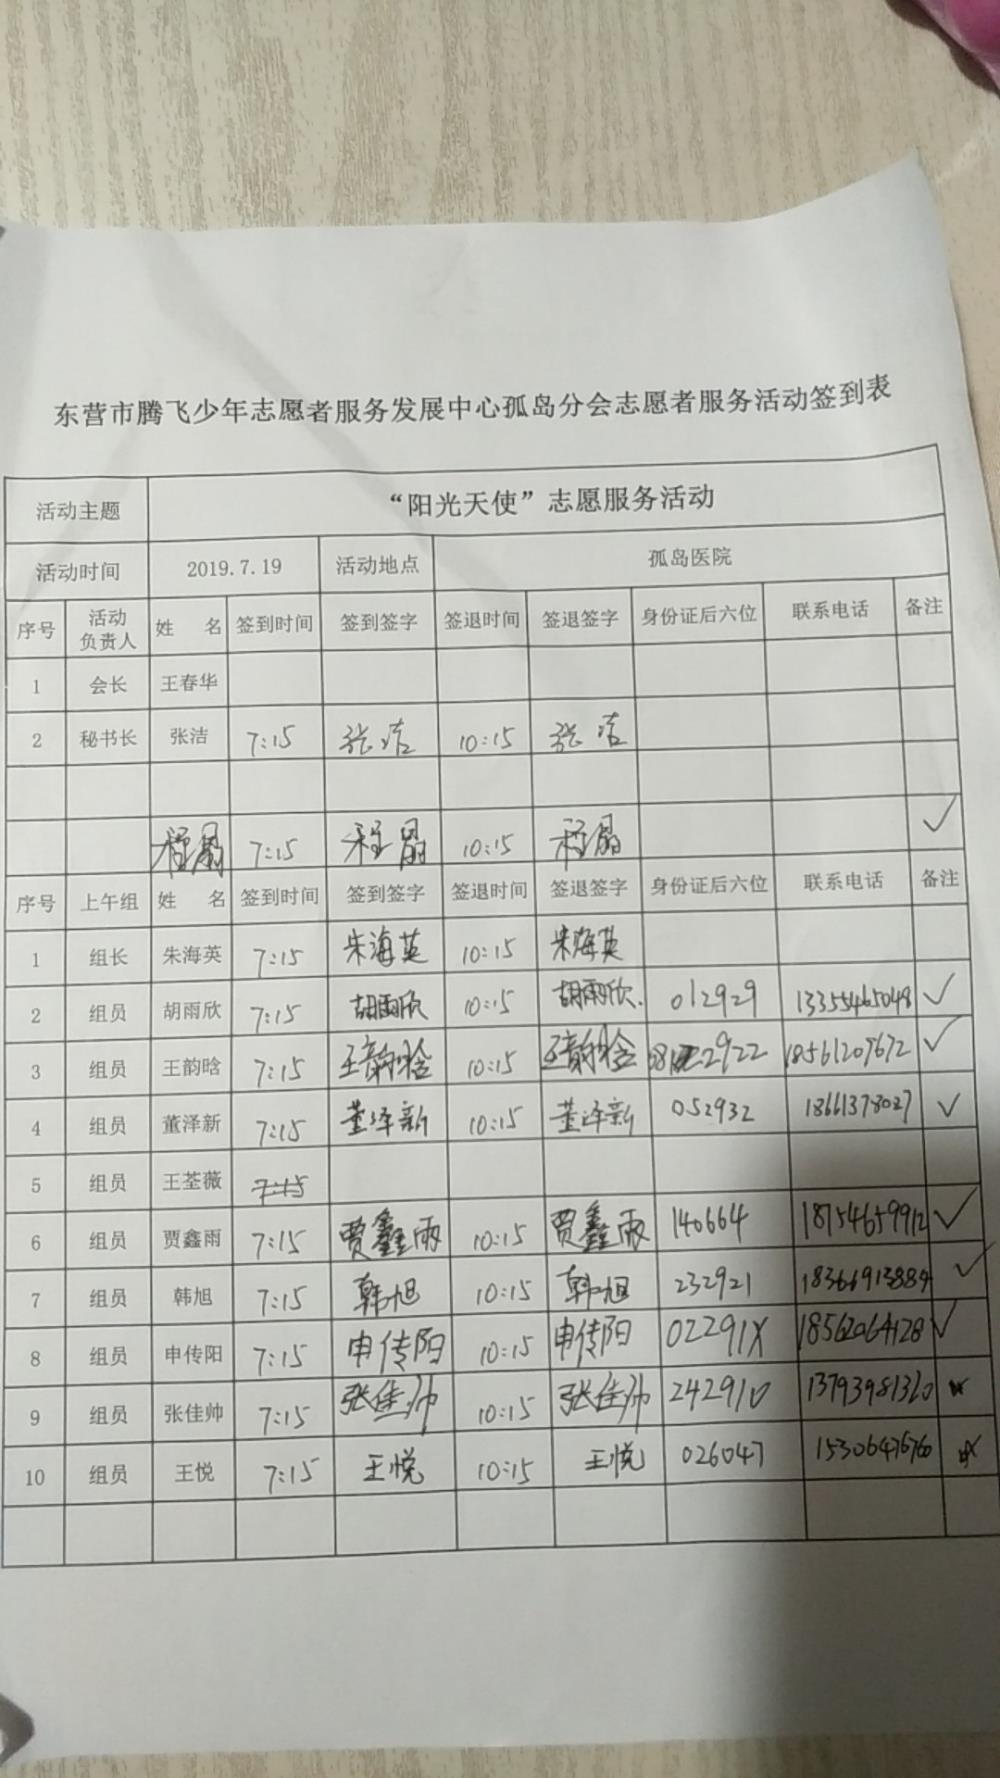 东营市腾飞少年志愿者服务发展中心孤岛分会志愿者服务活动签到表
活动主题 “阳光天使”志愿服务活动
活动时间 2019.7.19 活动地点 孤岛医院
序号 活动负责人 姓 名 签到时间 签到签字 签退时间 签退签字 身份证后六位 联系电话 备注
1 会长 王春华
2 秘书长 张洁 7:15 张洁 10:15 张洁
程晶 7:15 程晶 10:15 程晶 ✓
序号 上午组 姓 名 签到时间 签到签字 签退时间 签退签字 身份证后六位 联系电话 备注
1 组长 朱海英 7:15 朱海英 10:15 朱海英
2 组员 胡雨欣 7:15 胡雨欣 10:15 胡雨欣 012929 13355465048 ✓
3 组员 王韵晗 7:15 王韵晗 10:15 王韵晗 18561207672 ✓
4 组员 董泽新 7:15 董泽新 10:15 董泽新 052932 18661378027 ✓
5 组员 王荃薇 7:15
6 组员 贾鑫雨 7:15 贾鑫雨 10:15 贾鑫雨 140664 18754659912 ✓
7 组员 韩旭 7:15 韩旭 10:15 韩旭 232921 18366913884 ✓
8 组员 申传阳 7:15 申传阳 10:15 申传阳 02291X 18562064128 ✓
9 组员 张佳帅 7:15 张佳帅 10:15 张佳帅 242910 13793981320
10 组员 王悦 7:15 王悦 10:15 王悦 026047 15306476760